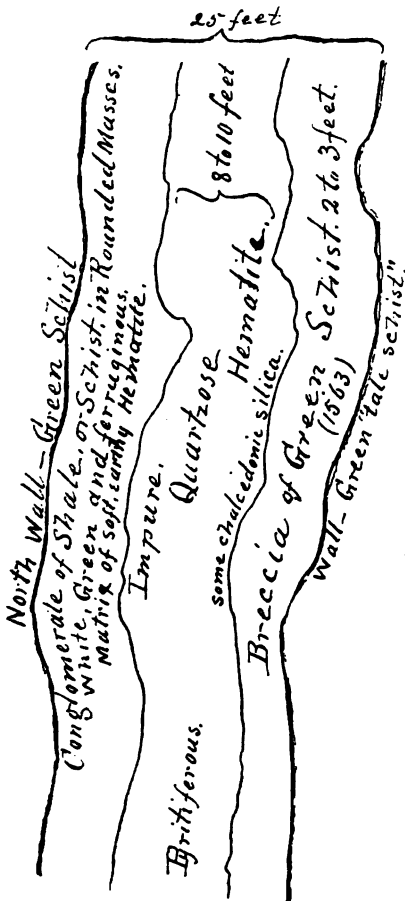 25 feet
North Wall–Green Schist
Conglomerale of Shale, or Schist, in Rounded Masses.
White, Green and ferruginous.
Matrix of soft, earthy Hematite.
8 to 10 feet
Impure. Quartzose Hematite.
some chalcedonic silica.
Pyritiferous.
Breccia of Green Schist. 2 to 3 feet.
(1563)
Wall–Green "talc schist"